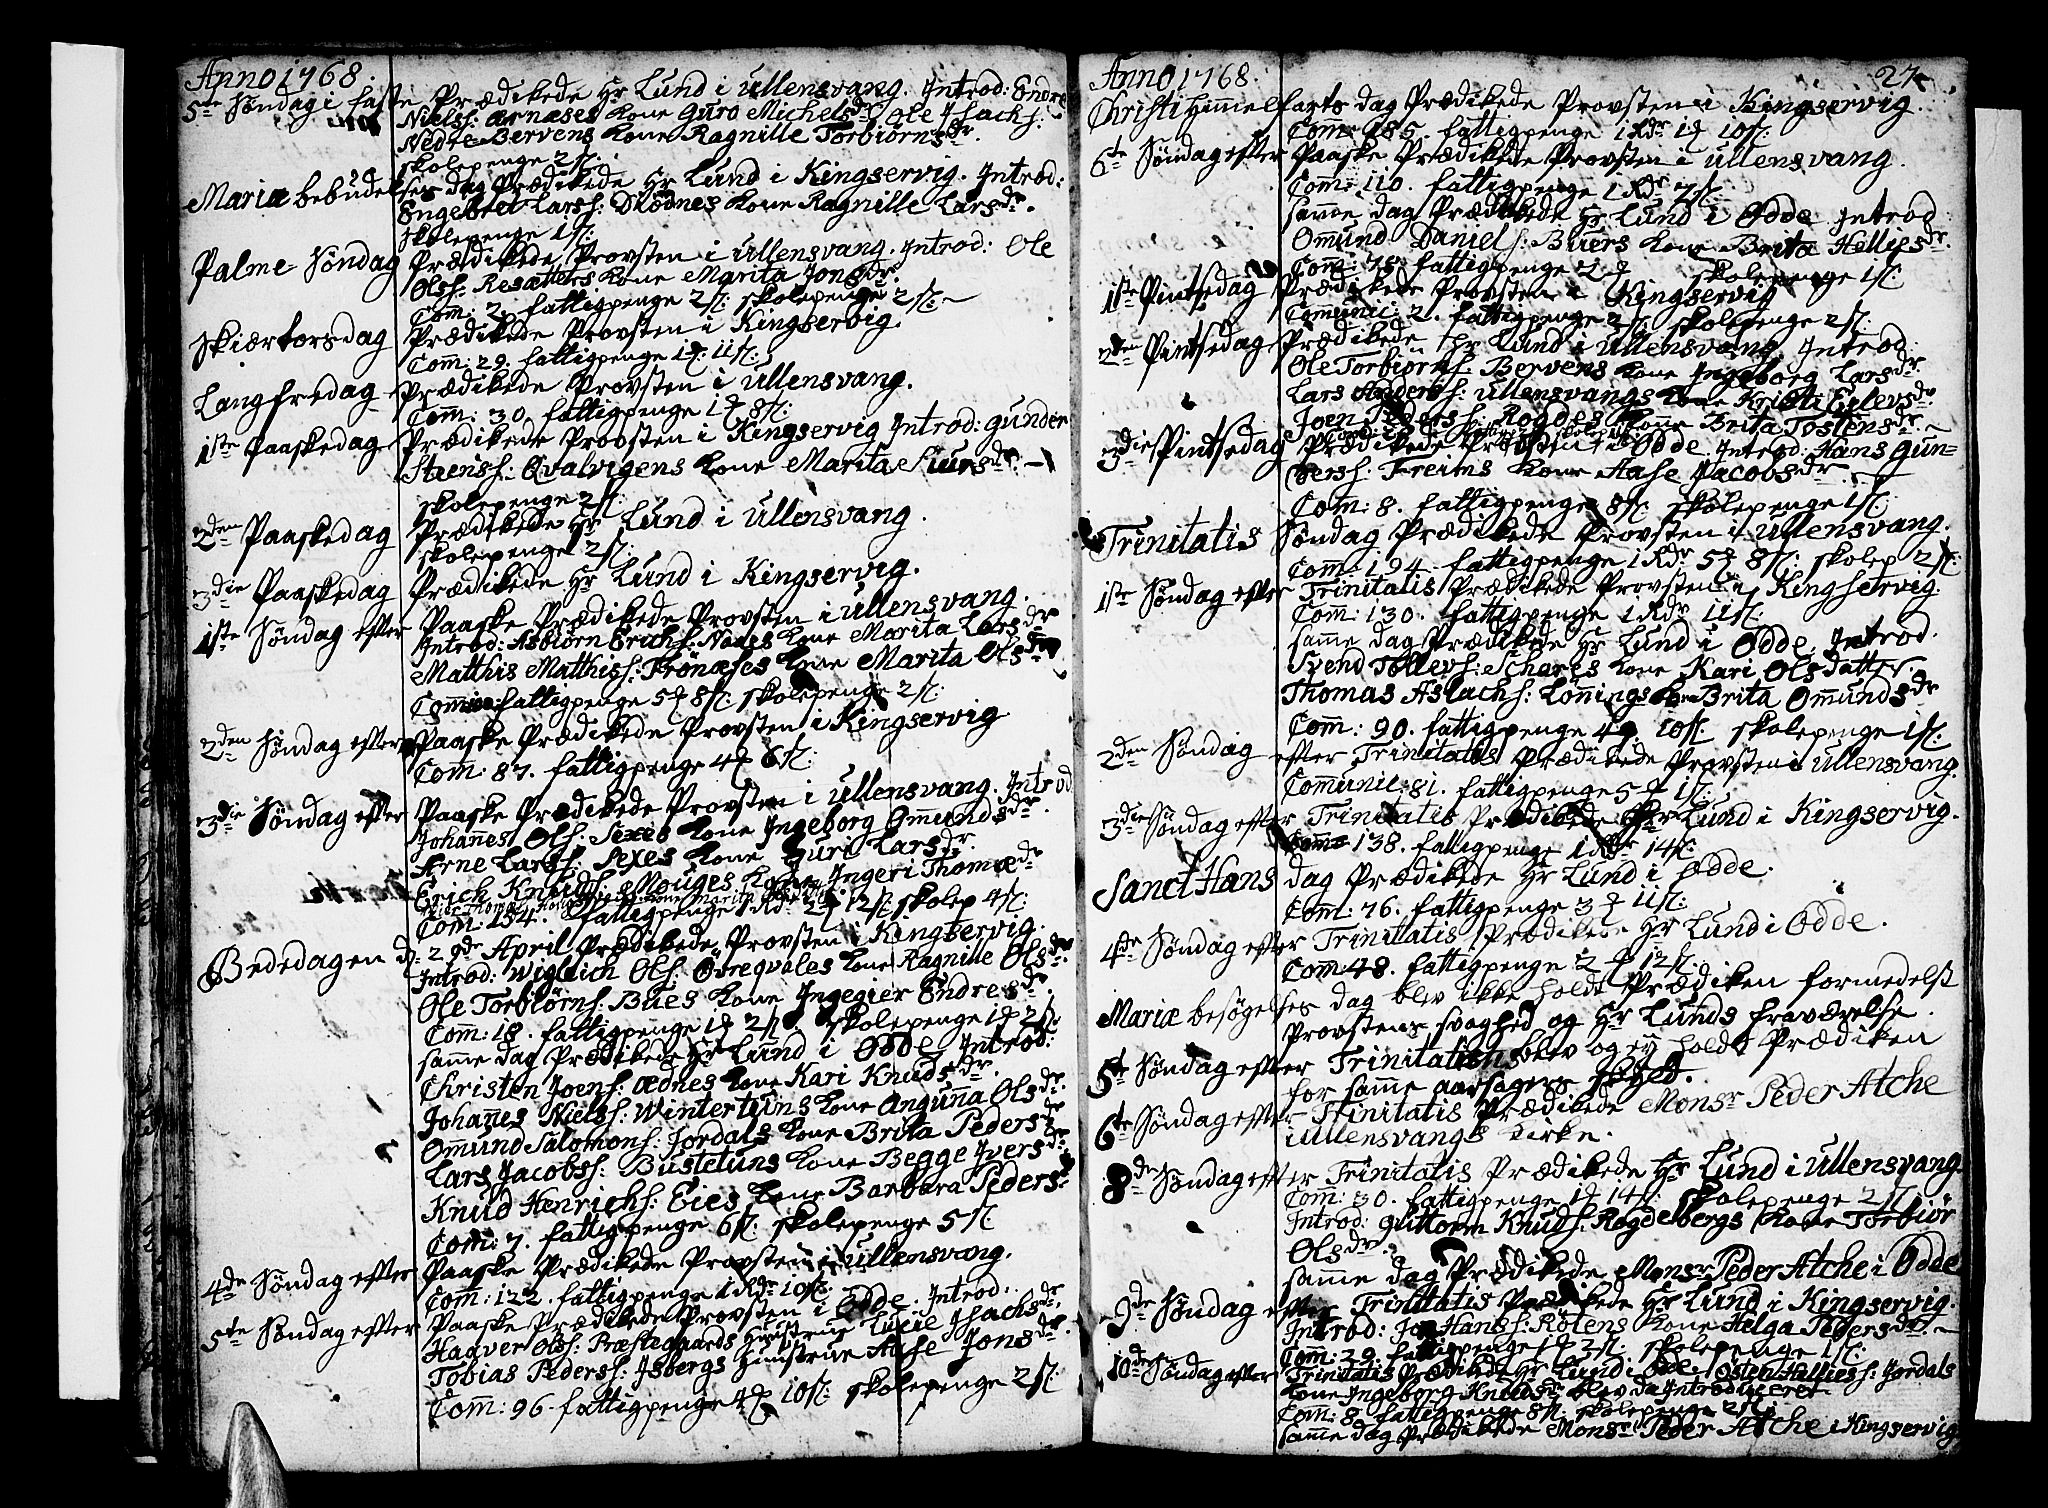 Anno 1768.
5te Søndag i faste Prædikede Hr Lund i Ullensvang. Introd: Endre
Nielss: Ernæses kone Guro Michelsdr Ole Isachs:
Nedre-Bervens kone Ragnille Torbiørnsdr.
skolepenge 2 sk:
Mariæ bebudelses dag Prædikede Hr Lund i Kingservig. Introd:
Engebret Larss: kone Ragnille Larsdr.
skolepenge 1 sk:
Palme-Søndag Prædikede Provsten i Ullensvang. Introd: Ole
Olss: Resætters kone Marita Jonsdr
Com: 2. fattigpenge 2 sk: skolepenge 2 sk:
Skiærtorsdag Prædikede Provsten i Kingservig.
Com: 29. fattigpenge 1 ꝗ. 11 sk:
Langfredag Prædikede Provsten i Ullensvang.
Com: 30. fattigpenge 1 ꝗ 8 sk:
1ste Paaskedag Prædikede Provsten i Kingservig Introd: Gunder
Steenss: Qvalvigens kone Marita Siursdr.
skolepenge 2 sk:
2den Paaskedag Prædikede Hr Lund i Ullensvang.
skolepenge 2 sk:
3die Paaskedag Prædikede Hr Lund i Kingservig.
1ste Søndag efter Paaske Prædikede Provsten i Ullensvang.
Introd: Asbiørn Erichs: kone Marita Larsdr
Matthis Matthiss: kone Marita Olsdr
fattigpenge 5 ꝗ 8 sk: skolepenge 2 sk:
2den Søndag efter Paaske Prædikede Provsten i Kingservig
Com: 87. fattigpenge 4 ꝗ 6 sk:
3die Søndag efter Paaske Prædikede Provsten i Ullensvang. Introd
Johannes Olss: Sexes kone Ingeborg Omundsdr.
Arne Larss: Sexes kone Guri Larsdr.
Erich Knuds: Mouges kone Ingeri Thomædr
Com: 154. fattigpenge 1 Rdr 2 ꝗ 12 sk: skolep 4 sk:
Bededagen d: 29de April Prædikede Provsten i Kingservig.
Introd: Wigleich Olss: kone Ragnille Olsdr.
Ole Torbiørns: Bues kone Ingegier Endresdr.
Com: 18. fattigpenge 1 ꝗ 2 sk. skolepenge 1 ꝗ 2 sk:
samme dag Prædikede Hr Lund i Odde Introd:
Christen Joens: Ædnes kone Kari Knudsdr.
Johannes Nielss: Wintertuns kone Angunna Olsdr.
Omund Salomons: Jordals kone Brita Pedersdr
Lars Jacobss: Bustetuns kone Begge Iversdr
Knud Henrichs: Eies kone Barbara Peders-
Com: 7. fattigpenge 6 sk: skolepenge 5 sk
4de Søndag efter Paaske Prædikede Provsten i Ullensvang.
Com: 122. fattigpenge 1 Rdr 10 sk:
5te Søndag efter Paaske Prædikede Provsten i Odde. Introd:
Haqver Olss: Præstegaards Hustrue Lucie Isachsdr.
Tobias Pederss: Isbergs Hustrue Aase Jonsdr.
Com: 96. fattigpenge 4 ꝗ 10 sk: skolepenge 2 sk:
Anno 1768.
27.
Christi Himmelfarts dag Prædikede Provsten i Kingservig.
Com: 185. fattigpenge 1 Rdr 1 ꝗ 10 sk:
6te Søndag efter Paaske Prædikede Provsten i Ullensvang.
Com: 110. fattigpenge 1 Rdr 7 sk:
samme dag Prædikede Hr Lund i Odde Introd
Omund Daniels: Buers kone Brita Helliesdr.
Com: 78. fattigpenge 2 ꝗ skolepenge 1 sk:
1ste Pintsedag Prædikede Provsten i Kingservig
Comunic: 2. fattigpenge 2 sk skolepenge 2 sk.
2den Pintsedag Prædikede Hr Lund i Ullensvang. Introd:
Ole Torbiørns: Bervens kone Ingeborg Larsdr.
Lars Anderss: Ullensvangs kone Kristi Eilevsdr
Joen Pederss: Rogdes kone Brita Tostensdr.
3die Pintsedag Prædikede Provsten i Odde. Introd: Hans Gun-
derss: Freims kone Aase Jacobsdr.
Com: 8. fattigpenge 8 sk skolepenge 1 sk:
Trinitatis Søndag Prædikede Provsten i Ullensvang.
Com: 194. fattigpenge 1 Rdr 5 ꝗ 8 sk: skolep 2 sk:
1ste Søndag efter Trinitatis Prædikede Provsten i Kingservig.
Com: 130. fattigpenge 1 Rdr 11 sk:
samme dag Prædikede Hr Lund i Odde. Introd.
Svend Tollevs: Schares kone Kari Olsdatter.
Thomas Aslachs: Lønnings kone Brita Omundsdr
Com: 90. fattigpenge 4 ꝗ. 10 sk skolepenge 1 sk:
2den Søndag efter Trinitatis Prædikede Provsten i Ullensvang.
Comunic: 81. fattigpenge 5 ꝗ 1 sk:
3die Søndag efter Trinitatis Prædikede Hr Lund i Kingservig.
Com: 138. fattigpenge 1 Rdr 14 sk
Sanct Hans dag Prædikede Hr Lund i Odde.
Com: 76. fattigpenge 3 ꝗ 11 sk:
4de Søndag efter Trinitatis Prædikede Hr Lund i Odde.
Com: 48. fattigpenge 2 ꝗ 12 sk:
Mariæ besøgelses dag blev ikke holdt Prædiken formedelst
Provstens svaghed og Hr Lunds fraværelse.
5te Søndag efter Trinitatis blev og ey holdt Prædiken
for samme aarsagers skyld.
6te Søndag efter Trinitatis Prædikede Monsr Peder Atche
i Ullensvangs kirke.
8de Søndag efter Trinitatis Prædikede Hr Lund i Ullensvang.
Com: 30. fattigpenge 1 ꝗ 14 sk: skolepenge 2 sk
Introd: Guttorm Knuds: Rogdebergs kone Torbiør
Olsdr.
samme dag Prædikede Monsr Peder Atche i Odde
9de Søndag efter Trinitatis Prædikede Hr Lund i Kingservig.
Introd: Jon Hanss: kone Helga Pedersdr.
Com: 29. fattigpenge 1 ꝗ 2 sk: skolepenge 1 sk:
10de Søndag efter Trinitatis Prædikede Hr Lund i Odde. Osten Hellies: Jordals
kone Ingeborg Knudsdr blev da Introduceret
Com: 8. fattigpenge 8 sk. skolepenge 2 sk:
samme dag Prædikede Monsr Peder Atche i Kingservig